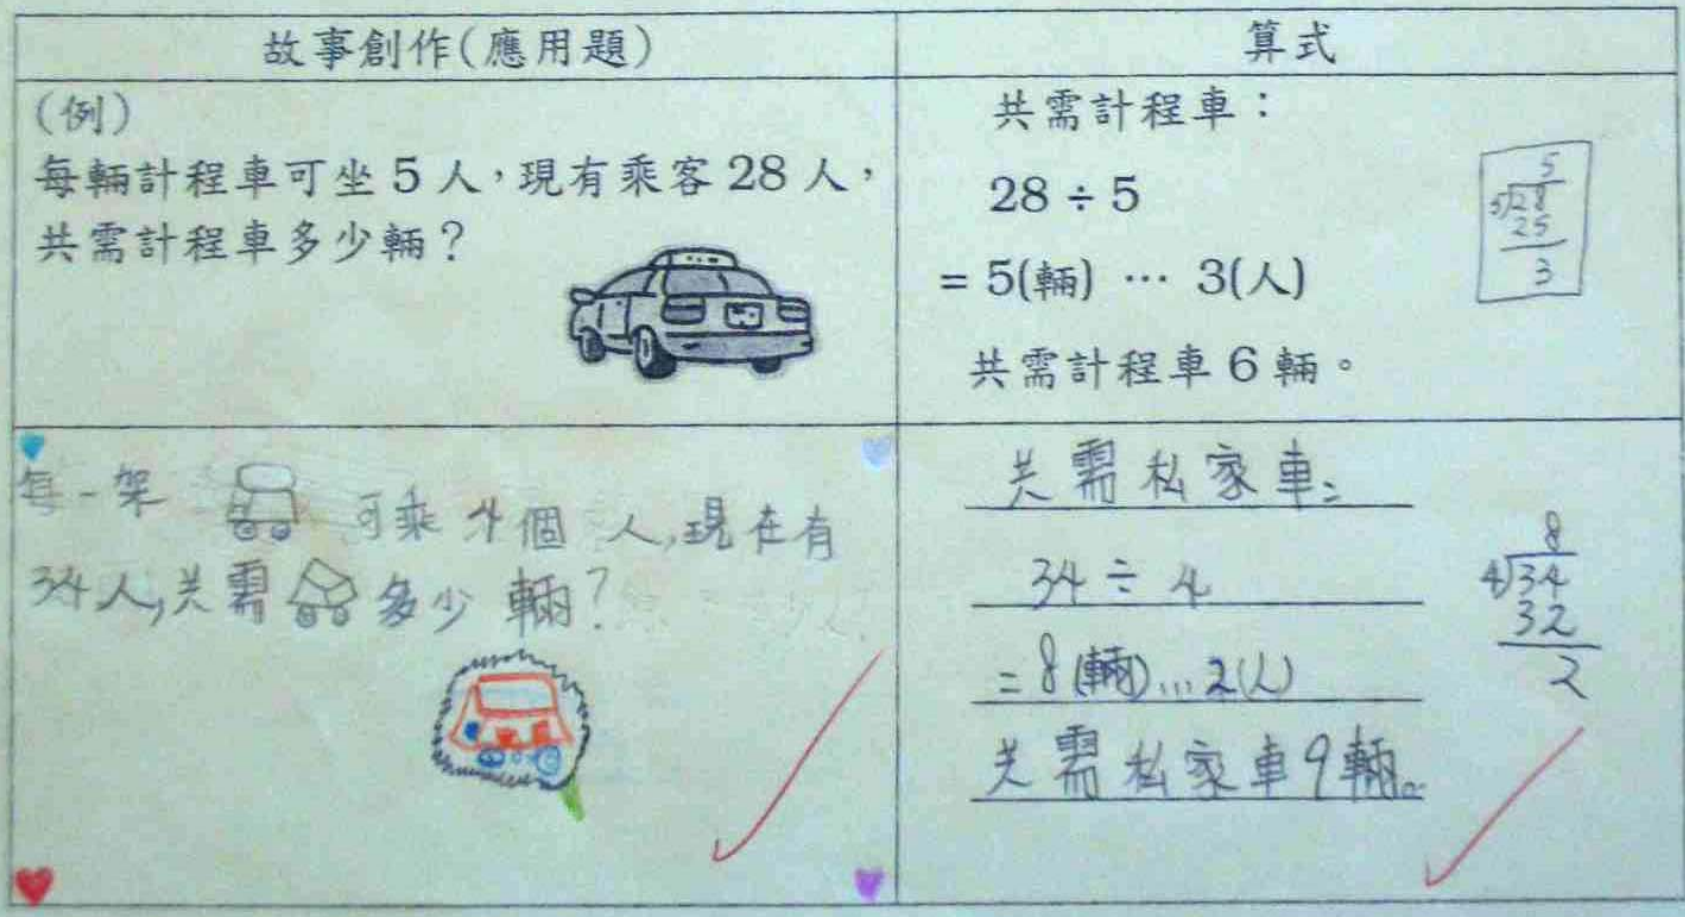 故事創作(應用題)
算式
(例)
每輛計程車可坐 5 人，現有乘客 28 人，
共需計程車多少輛？
共需計程車：
28 ÷ 5
= 5(輛) … 3(人)
共需計程車 6 輛。
5
5 28
25
3
每一架 可乘 4個 人,現在有
34人,共需 多少 輛?
共需私家車:
34 ÷ 4
= 8(輛)...2(人)
共需私家車9輛。
8
4 34
32
2